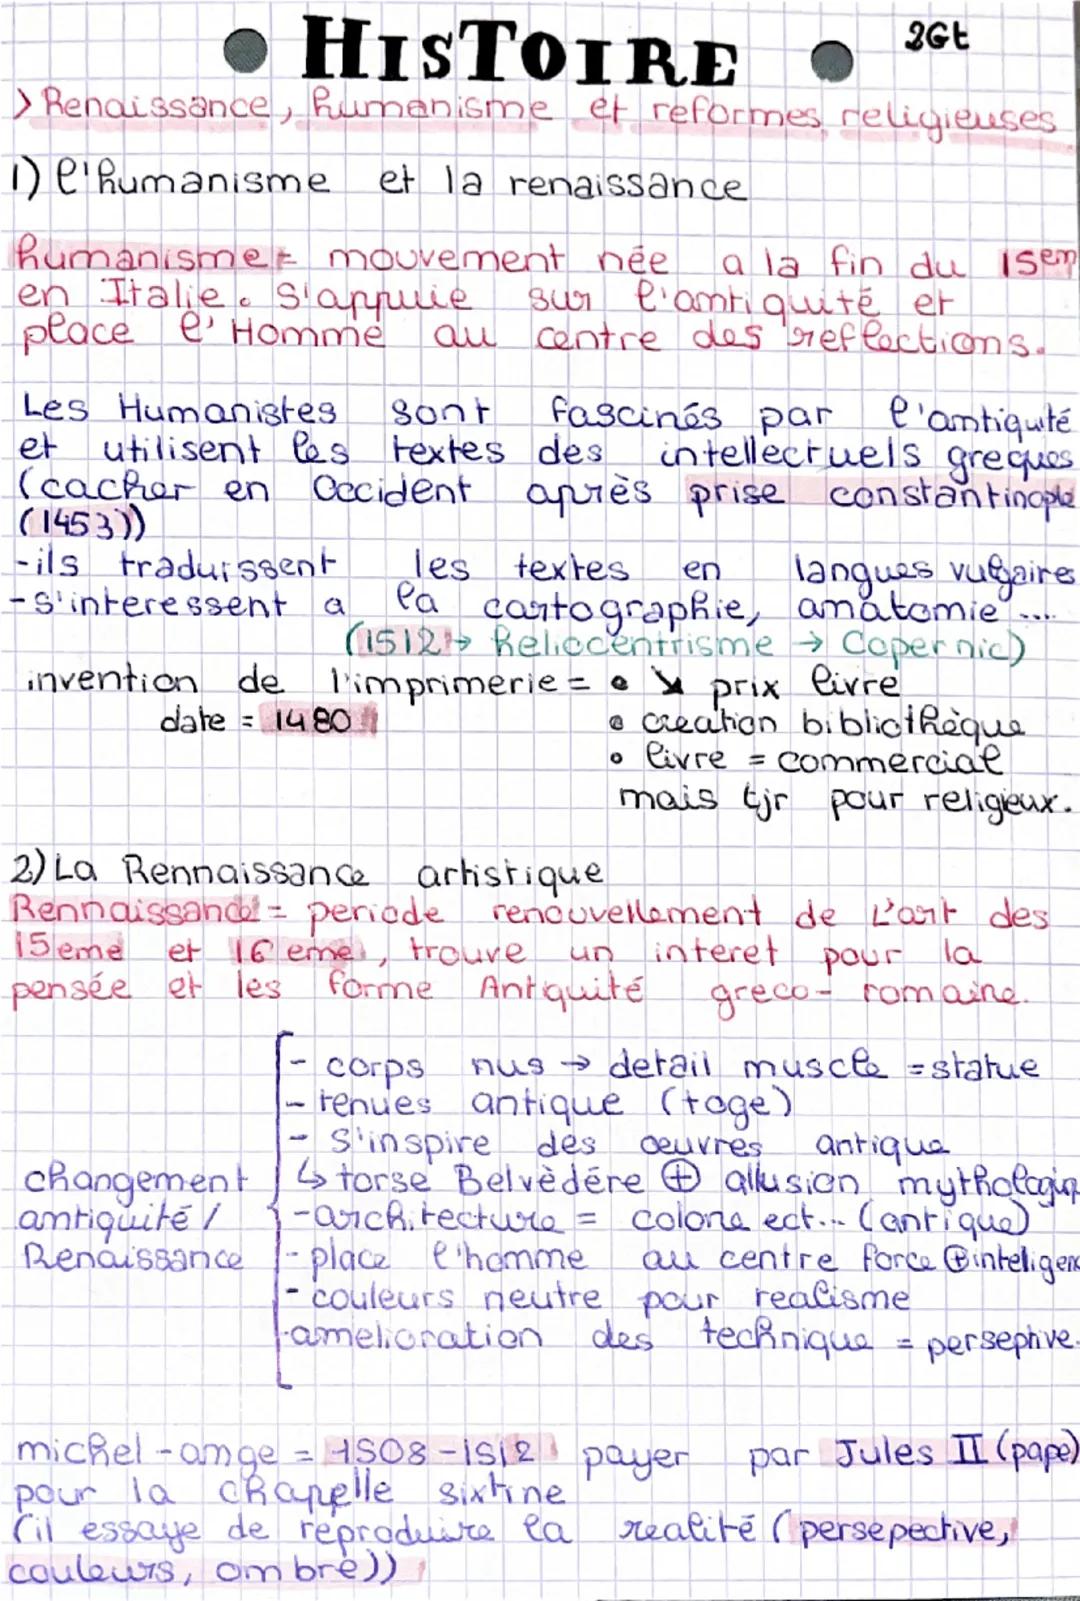 • HISTOIRE • 2Gt
> Renaissance, humanisme et reformes religieuses
1) l'humanisme et la renaissance
humanisme = mouvement née a la fin du 15em
en Italie. S'appuie sur l'antiquité et
place l'Homme au centre des reflections.
Les Humanistes sont fascinés par l'antiquité
et utilisent les textes des intellectuels greques
(cacher en Occident après prise constantinople
(1453))
-ils traduissent les textes en langues vulgaires
-s'interessent a la cartographie, anatomie ....
(1512 → heliocentrisme → Copernic)
invention de l'imprimerie = • ↘ prix livre
date = 1480 • creation bibliothèque
• livre = commercial
mais tjr pour religieux.
2) La Rennaissance artistique
Rennaissance = periode renouvellement de L'art des
15eme et 16 eme, trouve un interet pour la
pensée et les forme Antiquité greco-romaine.
- corps nus → detail muscle = statue
- tenues antique (toge)
- S'inspire des œuvres antique
↳ torse Belvèdére ⊕ allusion mythologiq
changement
antiquité /
Renaissance
-architecture = colone ect... (antique)
-place l'homme au centre force ⊕ inteligenc
- couleurs neutre pour realisme
-amelioration des technique = perseptive.
michel-ange = 1508-1512 payer par Jules II (pape)
pour la chapelle sixtine
(il essaye de reproduire la realité (persepective,
couleurs, ombre))